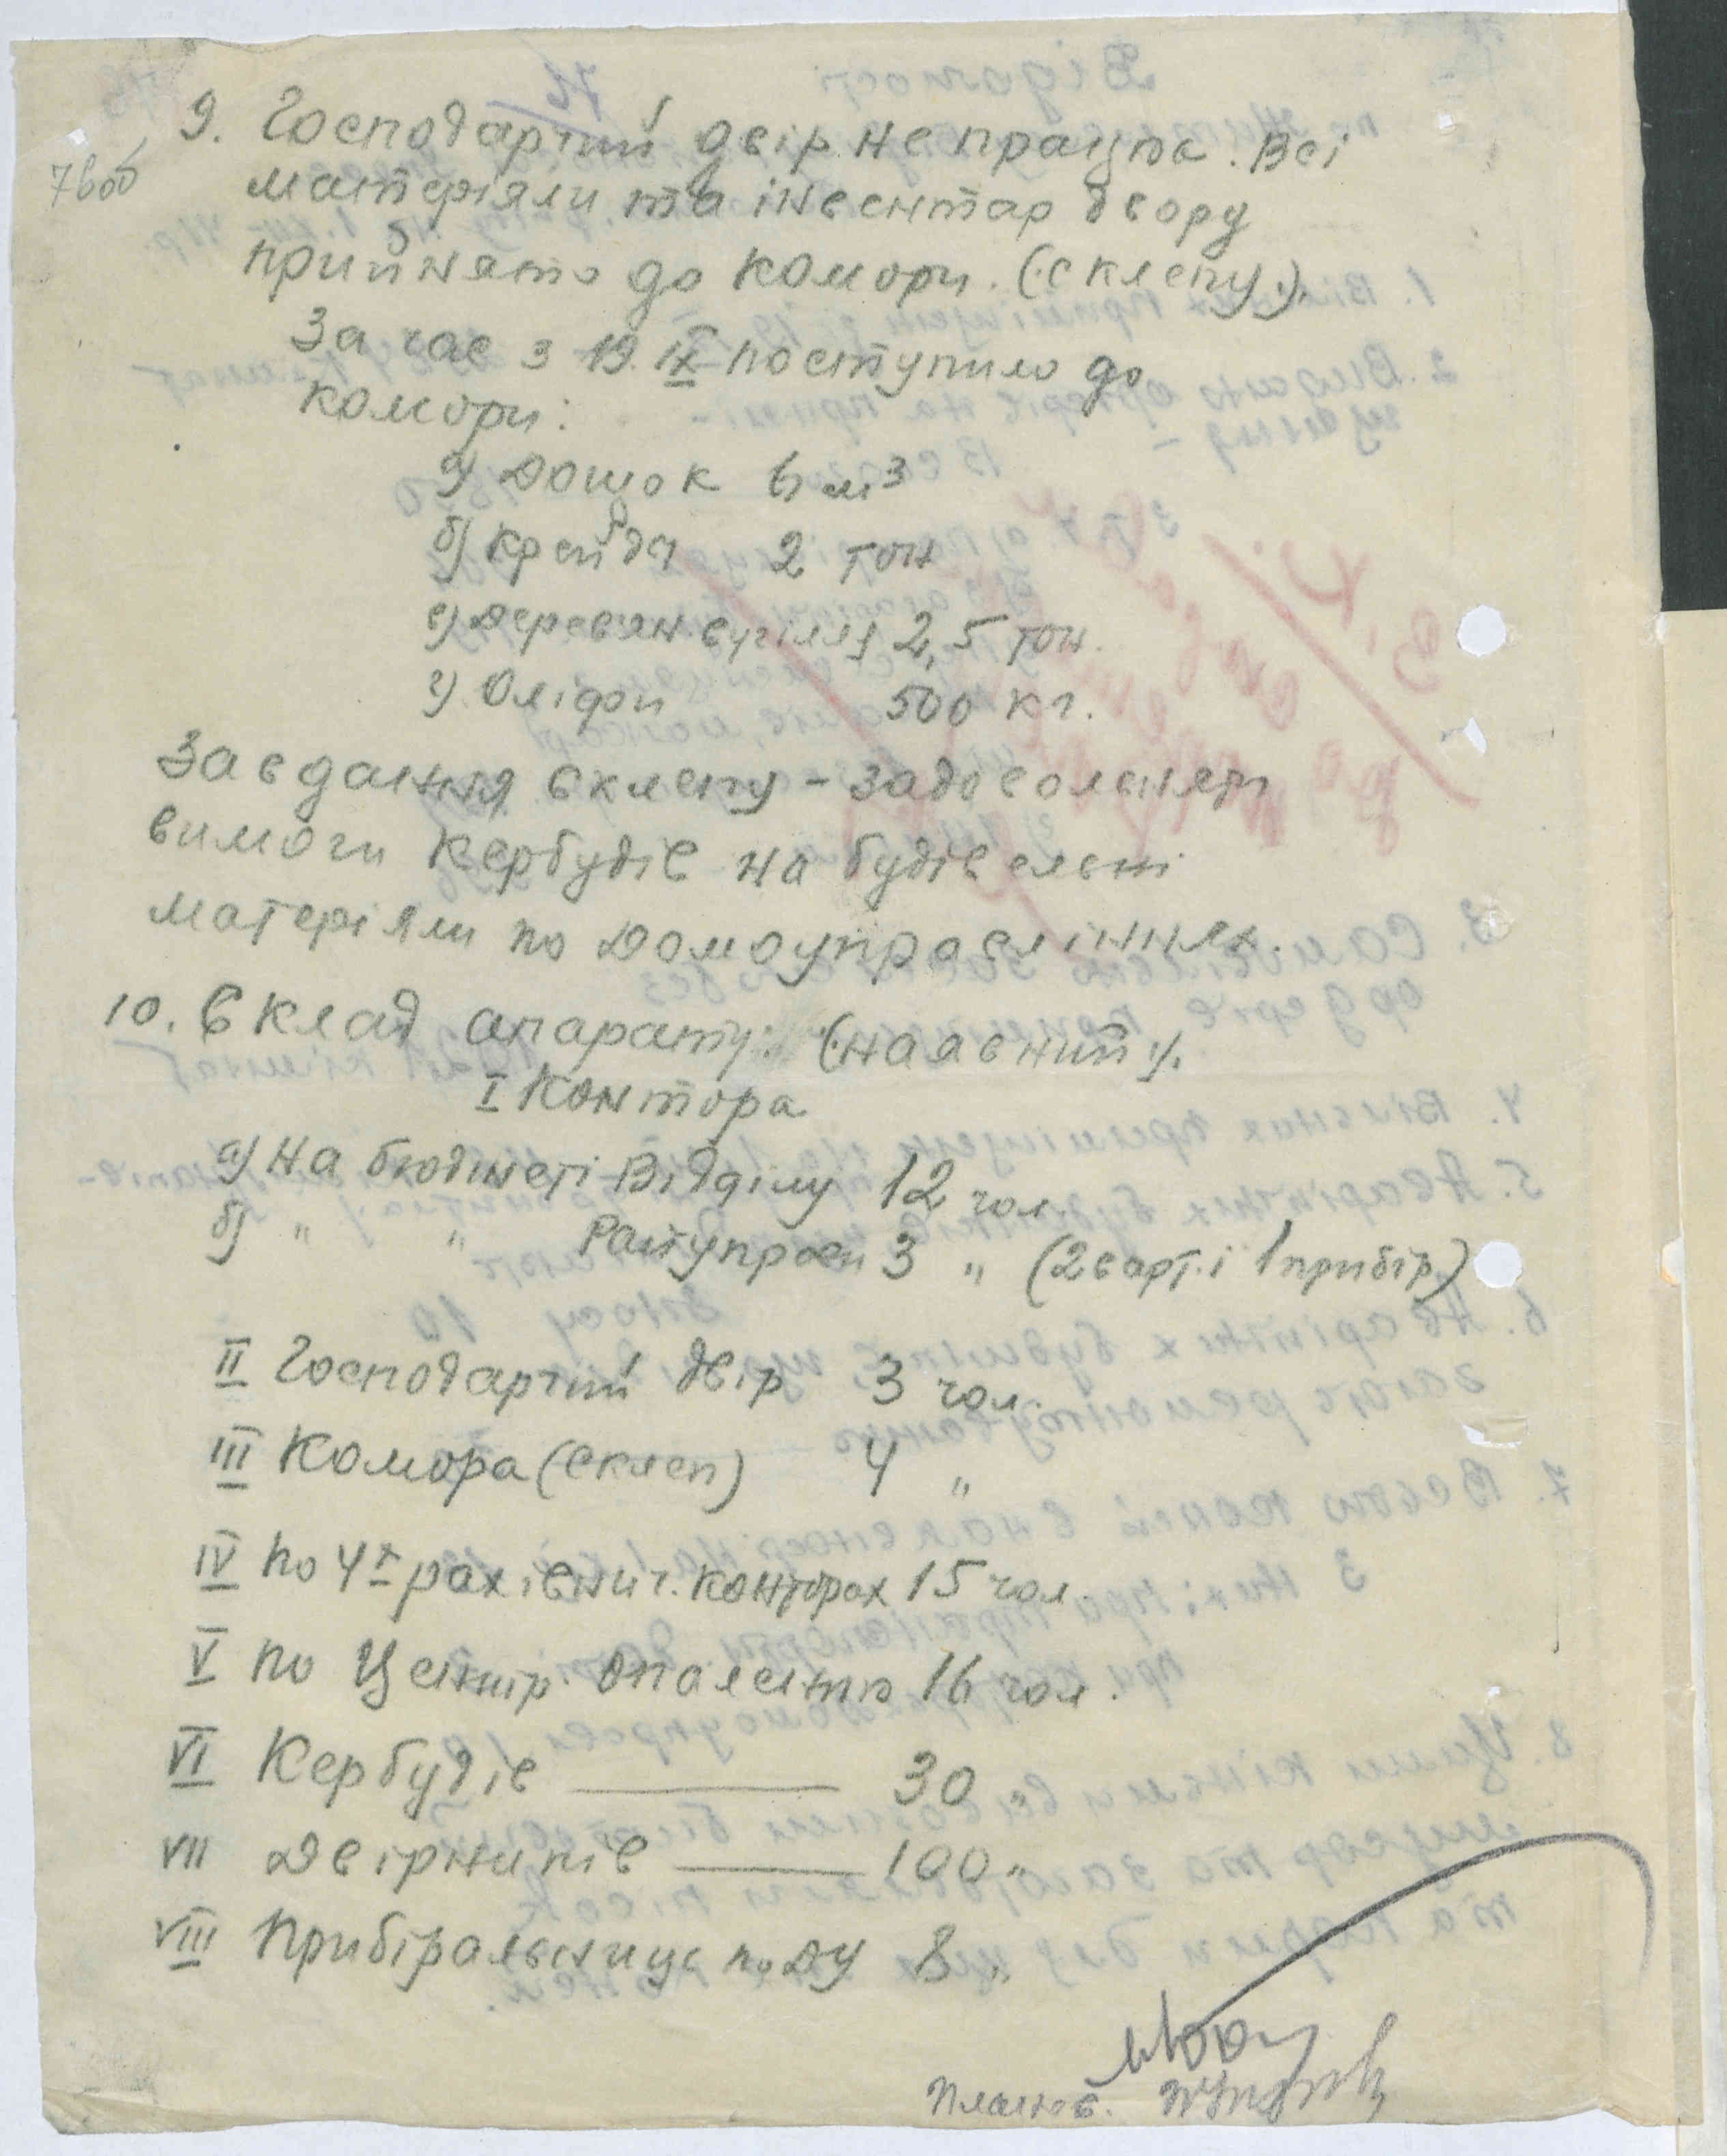 76об
9. Господарчий двір не працює. Всі
матеріяли та інвентар двору
прийнято до комори. (склепу).
За час з 19.IX поступило до
комори:
а) Дошок 6 м³
б) Крейда 2 тон
в) Дерев'ян. вугілля 2,5 тон.
г) Оліфи 500 кг.
Завдання склепу - задовольняти
вимоги Кербудів на будівельні
матеріяли по Домоуправліннях.
10. Склад апарату: (наявний).
I Контора
а) На бюджеті Відділу 12 чол.
б) " " Райуправи 3 " (2 варт. і 1 прибір)
II Господарчий двір 3 чол.
III Комора (склеп) 4 "
IV По 4х рахівнич. конторах 15 чол.
V По Центр. опаленню 16 чол.
VI Кербудів 30 "
VII Двірників 100 "
VIII Прибіральниць по ДУ 8 "
Планов.